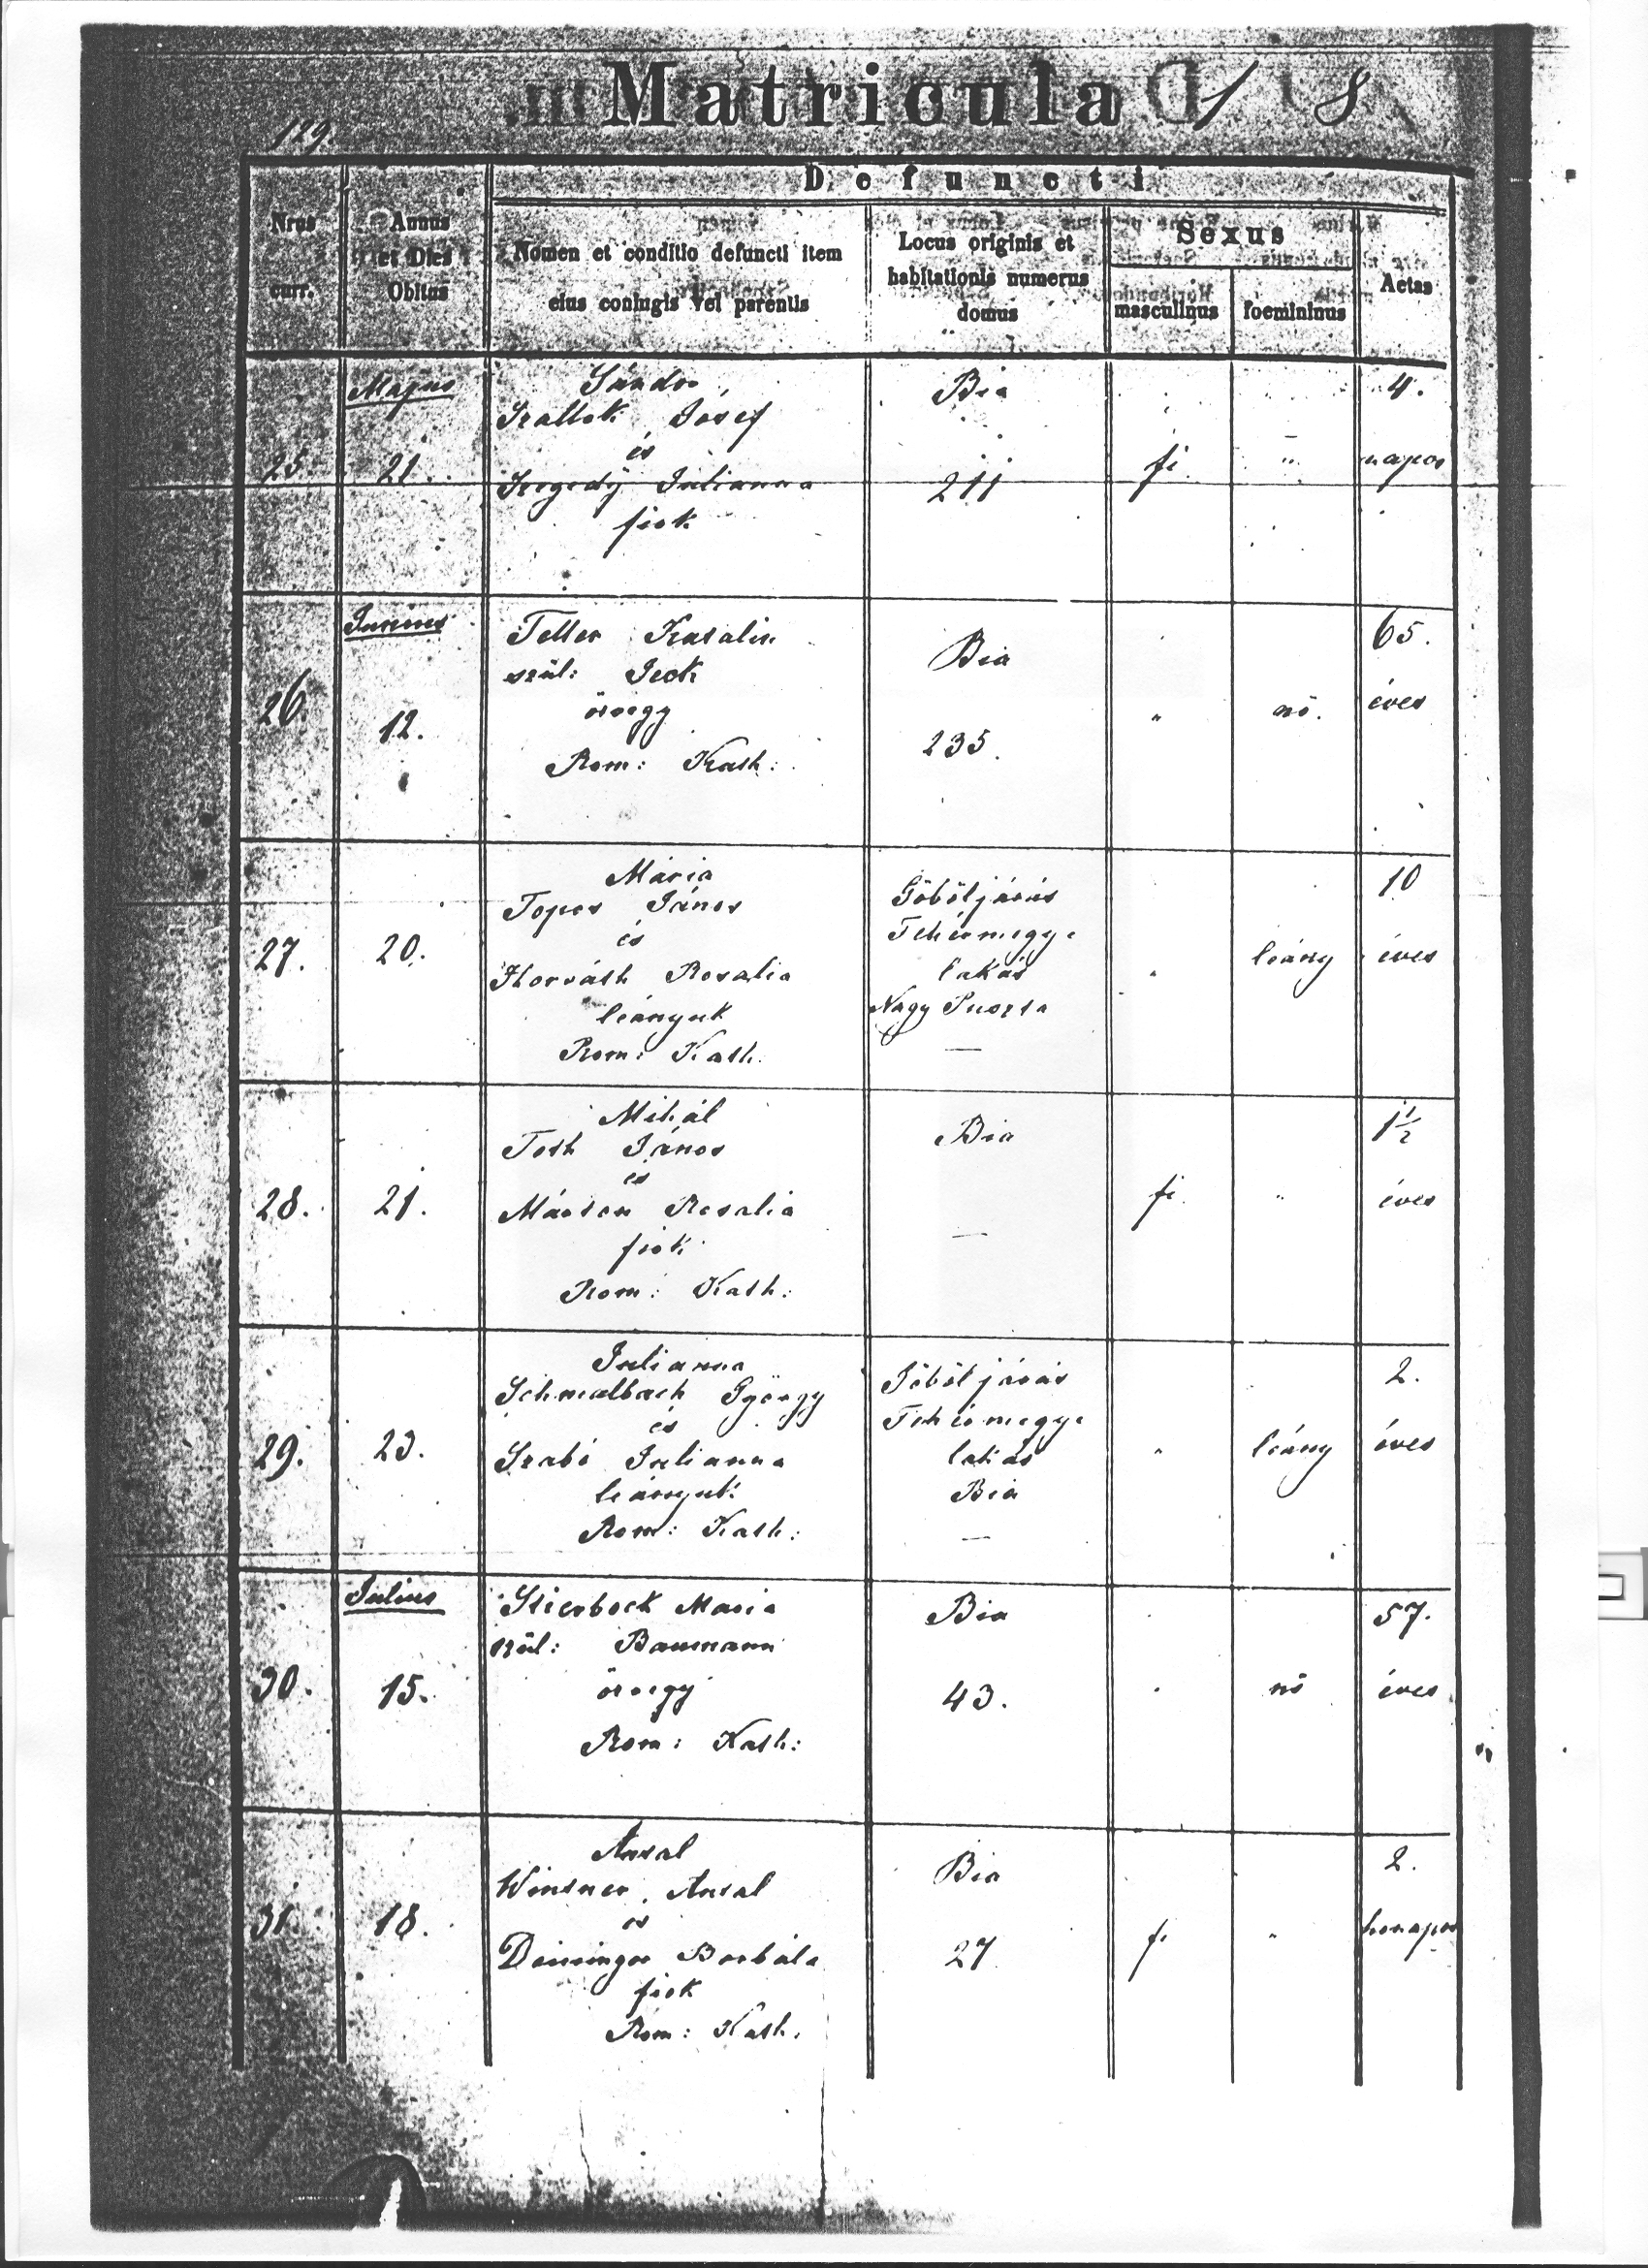 129.
Matricula 1 8
Defuncti
Nrus curr.
Annus et Dies Obitus
Nomen et conditio defuncti item
eius coniugis vel parentis
Locus originis et
habitationis numerus
domus
Sexus
masculinus
foemininus
Aetas
Majus
25. 21.
Sándor
József
és
Szegedÿ Julianna
fiok
Bia
211
fi "
4.
napos
Junius
26. 12.
Teller Katalin
szül: Jeck
özvegy
Rom: Kath:
Bia
235.
" nő.
65.
éves
27. 20.
Mária
Topos János
és
Horváth Rosalia
leányuk
Rom: Kath.
Göböljárás
Fehérmegye
lakás
Nagy
—
" leány
10
éves
28. 21.
Mihál
Toth János
és
Márton Rosalia
fiok
Rom: Kath:
Bia
—
fi "
1 1/2
éves
29. 23.
Julianna
Schmalbach György
és
Szabó Julianna
leányuk
Rom: Kath:
Göböljárás
Fehérmegye
lakás
Bia
—
" leány
2.
éves
Julius
30. 15.
Stierbock Maria
szül: Baumann
özvegy
Rom: Kath:
Bia
43.
" nő
57.
éves
31. 18.
Antal
Antal
és
Deininger Borbála
fiok
Rom: Kath.
Bia
27
fi "
2.
honapos